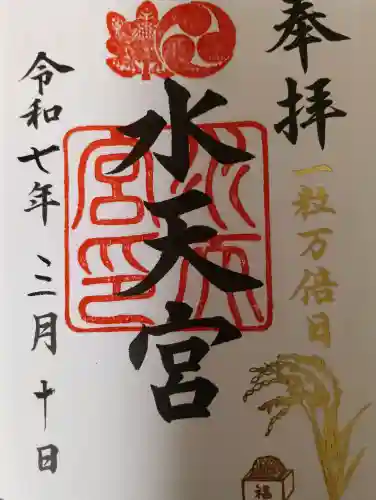 奉拝
一粒万倍日
水天宮
令和七年三月十日
福